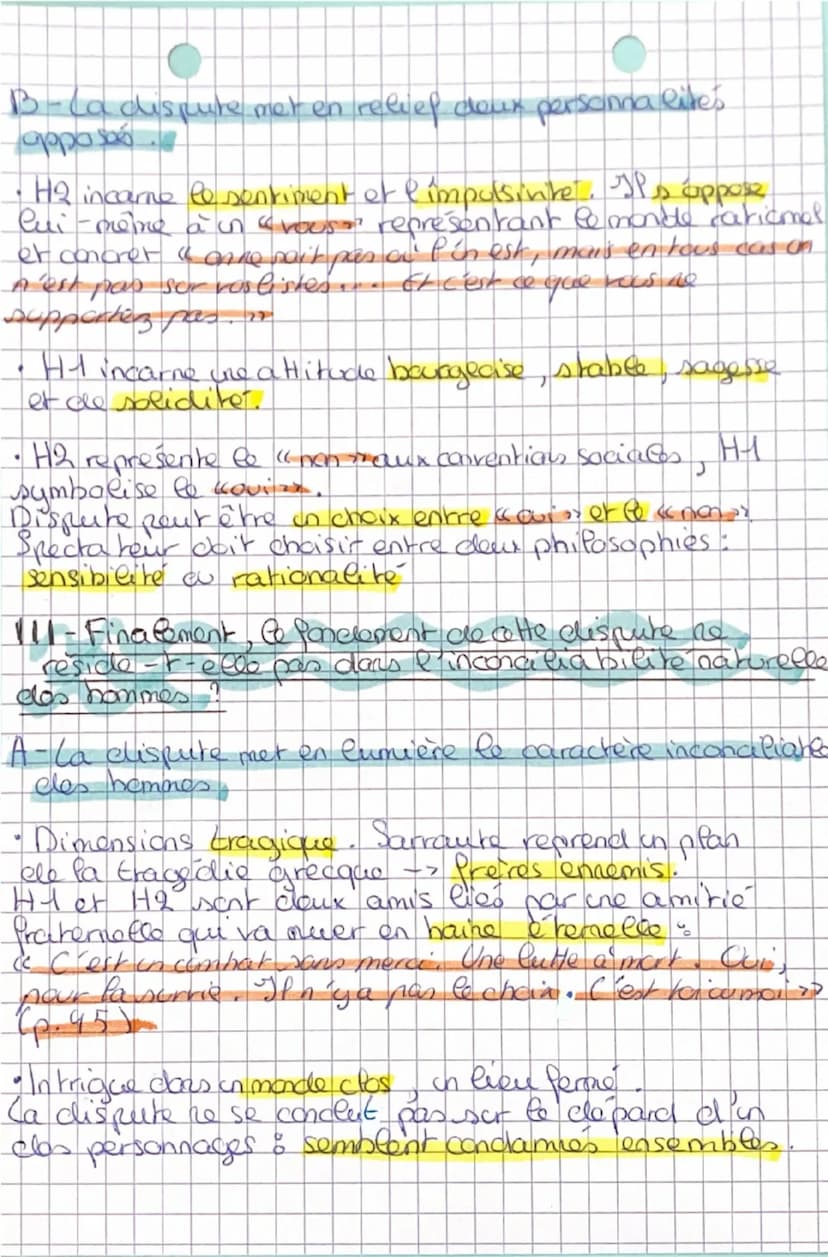 B-La dispute met en relief deux personnalités
opposés.
• H2 incarne le sentiment et l'impulsivité. Il s'oppose
lui-même à un "vous" représentant le monde rationnel
et concret « on ne sait pas où l'on est, mais en tous cas on
n'est pas sur vos listes... Et c'est ce que vous ne
supportez pas. »
• H1 incarne une attitude bourgeoise, stable, sagesse
et de solidité.
• H2 représente le « non » aux conventions sociales, H1
symbolise le « oui ».
Dispute peut être un choix entre « oui » et le « non ».
Spectateur doit choisir entre deux philosophies :
sensibilité ou rationalité
III-Finalement, le fondement de cette dispute ne
réside-t-elle pas dans l'inconciliabilité naturelle
des hommes ?
A-La dispute met en lumière le caractère inconciliable
des hommes.
• Dimensions tragique. Sarraute reprend un plan
de la tragédie grecque -> frères ennemis.
H1 et H2 sont deux amis liés par une amitié
fraternelle qui va muer en haine éternelle :
« C'est un combat sans merci. Une lutte à mort. Oui,
pour la survie. Il n'y a pas le choix. C'est toi ou moi »
(p.45)
• Intrigue dans un monde clos, un lieu fermé.
La dispute ne se conclut pas sur le départ d'un
des personnages : semblent condamnés ensembles.